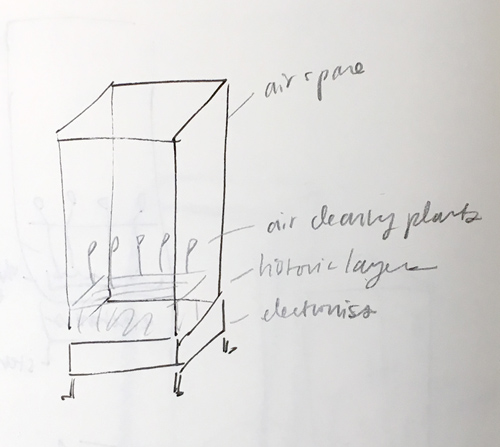 air space
air cleaning plants
historic layer
electronics